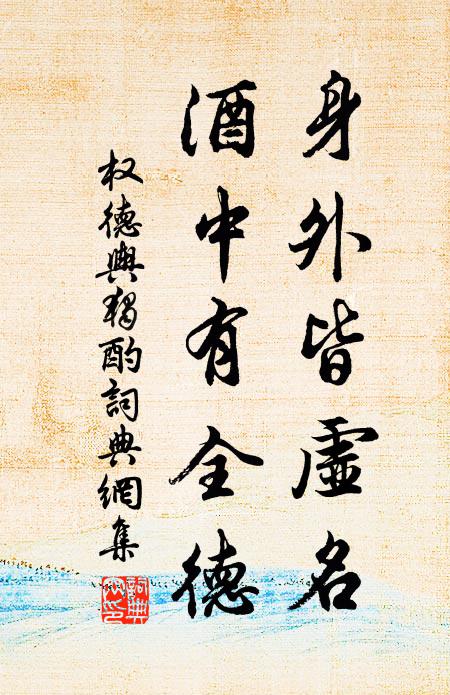 身外皆虛名
酒中有全德
权德輿獨酌詞典網集